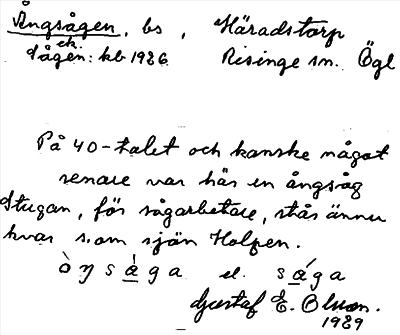 Ångsågen, bs, Häradstorp
ek.
Sågen: kb 1926 Risinge sn. Ögl
På 40-talet och kanske något
senare var här en ångsåg
Stugan, för sågarbetare, står ännu
kvar som sjön Holpen.
òŋsàga el. sága
Gustaf E. Olsson.
1929